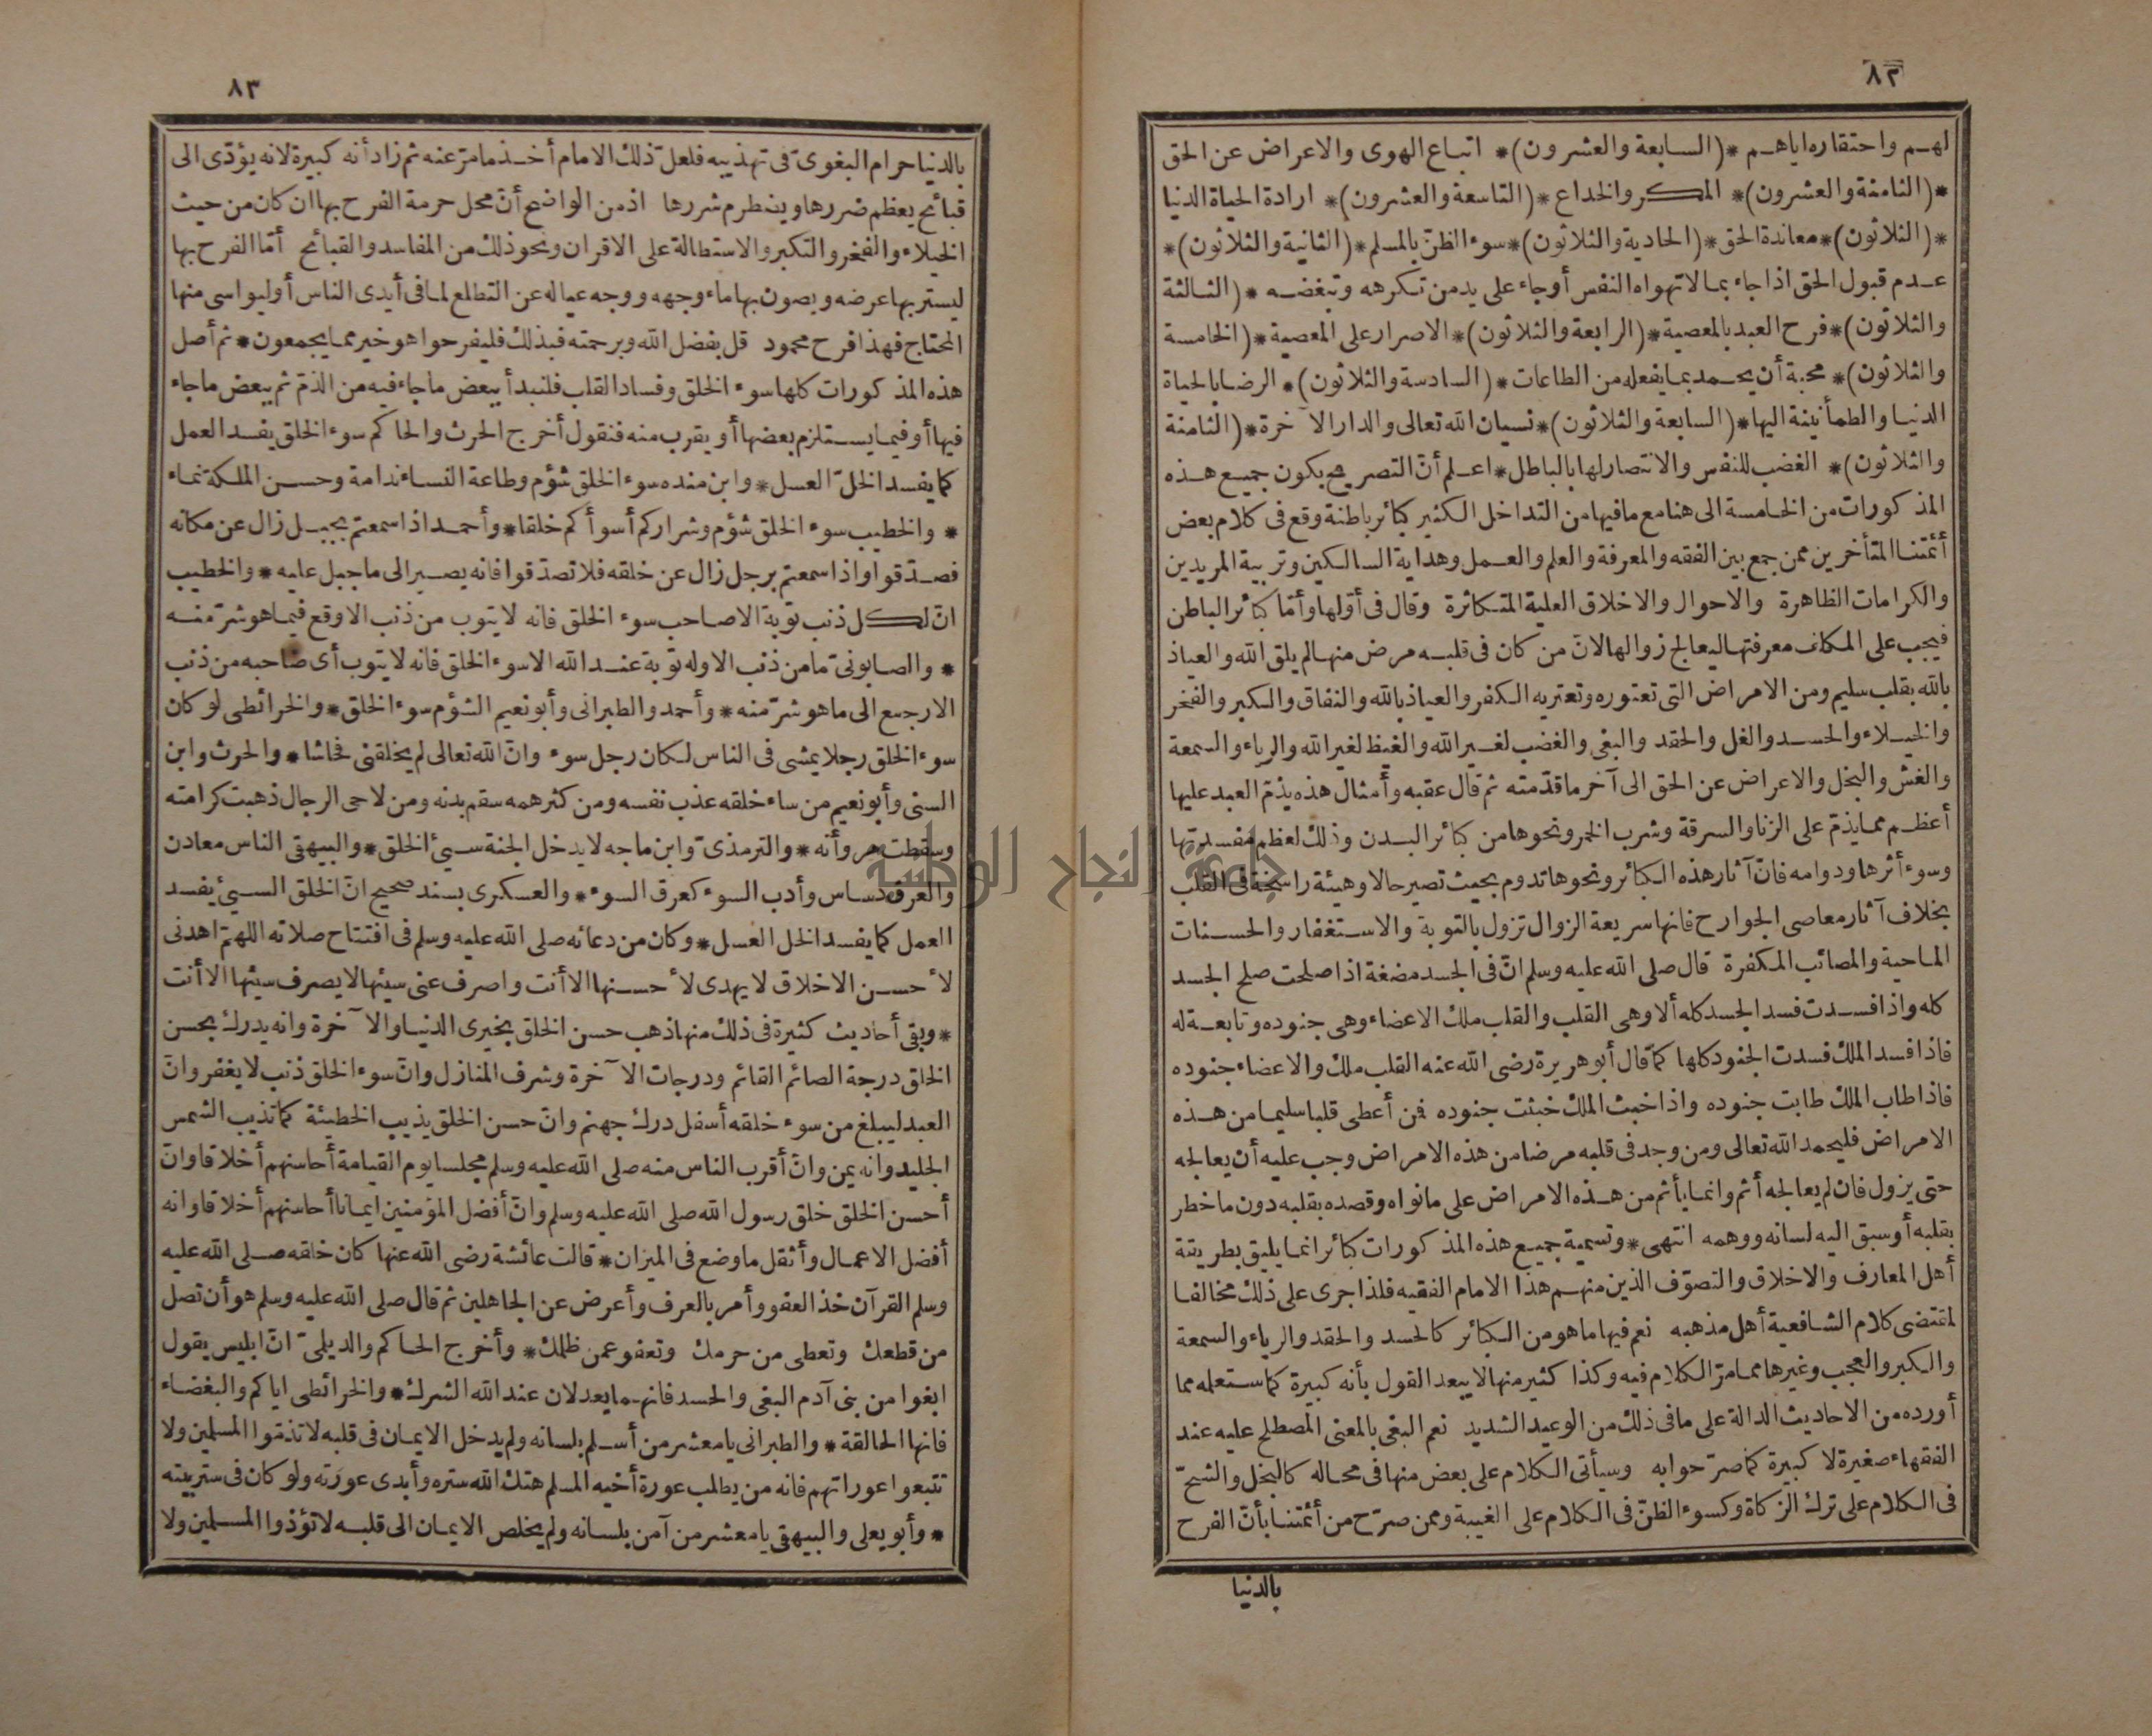 ٨٢
لهم واحتقاره اياهم *(السابعة والعشرون)* اتباع الهوى والاعراض عن الحق
*(الثامنة والعشرون)* المكر والخداع *(التاسعة والعشرون)* ارادة الحياة الدنيا
*(الثلاثون)* معاندة الحق *(الحادية والثلاثون)* سوء الظنّ بالمسلم *(الثانية والثلاثون)*
عدم قبول الحق اذا جاء بما لا تهواه النفس أو جاء على يد من تكرهه وتبغضه *(الثالثة
والثلاثون)* فرح العبد بالمعصية *(الرابعة والثلاثون)* الاصرار على المعصية *(الخامسة
والثلاثون)* محبة أن يحمد بما يفعله من الطاعات *(السادسة والثلاثون)* الرضا بالحياة
الدنيا والطمأنينة اليها *(السابعة والثلاثون)* نسيان الله تعالى والدار الآخرة *(الثامنة
والثلاثون)* الغضب للنفس والانتصار لها بالباطل * اعلم أنّ التصريح بكون جميع هذه
المذكورات من الخامسة الى هنا مع ما فيها من التداخل الكثير كبائر باطنة وقع فى كلام بعض
أئمتنا المتأخرين ممن جمع بين الفقه والمعرفة والعلم والعمل وهداية السالكين وتربية المريدين
والكرامات الظاهرة والاحوال والاخلاق العلية المتكاثرة وقال فى أوّلها وأمّا كبائر الباطن
فيجب على المكلف معرفتها ليعالج زوالها لانّ من كان فى قلبه مرض منها لم يلق الله والعياذ
بالله بقلب سليم ومن الامراض التى تعتوره وتعتريه الكفر والعياذ بالله والنفاق والكبر والفخر
والخيلاء والحسد والغل والحقد والبغى والغضب لغير الله والغيظ لغير الله والرياء والسمعة
والغش والبخل والاعراض عن الحق الى آخر ما قدّمته ثم قال عقبه وأمثال هذه يذمّ العبد عليها
أعظم مما يذمّ على الزنا والسرقة وشرب الخمر ونحوها من كبائر البدن وذلك لعظم مفسدتها
وسوء أثرها ودوامه فانّ آثار هذه الكبائر ونحوها تدوم بحيث تصير حالا وهيئة راسخة فى القلب
بخلاف آثار معاصى الجوارح فانها سريعة الزوال تزول بالتوبة والاستغفار والحسنات
الماحية والمصائب المكفرة قال صلى الله عليه وسلم انّ فى الجسد مضغة اذا صلحت صلح الجسد
كله واذا فسدت فسد الجسد كله ألا وهى القلب والقلب ملك الاعضاء وهى جنوده وتابعة له
فاذا فسد الملك فسدت الجنود كلها كما قال أبو هريرة رضى الله عنه القلب ملك والاعضاء جنوده
فاذا طاب الملك طابت جنوده واذا خبث الملك خبثت جنوده فمن أعطى قلبا سليما من هذه
الامراض فليحمد الله تعالى ومن وجد فى قلبه مرضا من هذه الامراض وجب عليه أن يعالجه
حتى يزول فان لم يعالجه أثم وانما يأثم من هذه الامراض على ما نواه وقصده بقلبه دون ما خطر
بقلبه أو سبق اليه لسانه ووهمه انتهى * وتسمية جميع هذه المذكورات كبائر انما يليق بطريقة
أهل المعارف والاخلاق والتصوّف الذين منهم هذا الامام الفقيه فلذا جرى على ذلك مخالفا
لمقتضى كلام الشافعية أهل مذهبه نعم فيها ما هو من الكبائر كالحسد والحقد والرياء والسمعة
والكبر والعجب وغيرها مما مرّ الكلام فيه وكذا كثير منها لا يبعد القول بأنه كبيرة كما ستعلمه مما
أورده من الاحاديث الدالة على ما فى ذلك من الوعيد الشديد نعم البغى بالمعنى المصطلح عليه عند
الفقهاء صغيرة لا كبيرة كما صرّحوا به وسيأتى الكلام على بعض منها فى محاله كالبخل والشحّ
فى الكلام على ترك الزكاة وكسوء الظنّ فى الكلام على الغيبة وممن صرّح من أئمتنا بأنّ الفرح
بالدنيا
٨٣
بالدنيا حرام البغوىّ فى تهذيبه فلعلّ ذلك الامام أخذ ما مرّ عنه ثم زاد أنه كبيرة لانه يؤدّى الى
قبائح يعظم ضررها ويضطرم شررها اذ من الواضح أنّ محل حرمة الفرح بها ان كان من حيث
الخيلاء والفخر والتكبر والاستطالة على الاقران ونحو ذلك من المفاسد والقبائح أمّا الفرح بها
ليستر بها عرضه ويصون بها ماء وجهه ووجه عياله عن التطلع لما فى أيدى الناس أو ليواسى منها
المحتاج فهذا فرح محمود قل بفضل الله وبرحمته فبذلك فليفرحوا هو خير مما يجمعون * ثم أصل
هذه المذكورات كلها سوء الخلق وفساد القلب فلنبدأ ببعض ما جاء فيه من الذمّ ثم ببعض ما جاء
فيها أو فيما يستلزم بعضها أو يقرب منه فنقول أخرج الحرث والحاكم سوء الخلق يفسد العمل
كما يفسد الخلّ العسل * وابن منده سوء الخلق شؤم وطاعة النساء ندامة وحسن الملكة نماء
* والخطيب سوء الخلق شؤم وشراركم أسوأكم خلقا * وأحمد اذا سمعتم بجبل زال عن مكانه
فصدّقوا واذا سمعتم برجل زال عن خلقه فلا تصدّقوا فانه يصير الى ما جبل عليه * والخطيب
انّ لكل ذنب توبة الا صاحب سوء الخلق فانه لا يتوب من ذنب الا وقع فيما هو شرّ منه
* والصابونىّ ما من ذنب الا وله توبة عند الله الا سوء الخلق فانه لا يتوب أى صاحبه من ذنب
الا رجع الى ما هو شرّ منه * وأحمد والطبرانى وأبو نعيم الشؤم سوء الخلق * والخرائطى لو كان
سوء الخلق رجلا يمشى فى الناس لكان رجل سوء وانّ الله تعالى لم يخلقنى فحاشا * والحرث وابن
السنى وأبو نعيم من ساء خلقه عذب نفسه ومن كثر همه سقم بدنه ومن لاحى الرجال ذهبت كرامته
وسقطت مروأته * والترمذىّ وابن ماجه لا يدخل الجنة سيئ الخلق * والبيهقى الناس معادن
والعرق دساس وأدب السوء كعرق السوء * والعسكرى بسند صحيح انّ الخلق السيئ يفسد
العمل كما يفسد الخل العسل * وكان من دعائه صلى الله عليه وسلم فى افتتاح صلاته اللهمّ اهدنى
لأحسن الاخلاق لا يهدى لأحسنها الا أنت واصرف عنى سيئها لا يصرف سيئها الا أنت
* وبقى أحاديث كثيرة فى ذلك منها ذهب حسن الخلق بخيرى الدنيا والآخرة وانه يدرك بحسن
الخلق درجة الصائم القائم ودرجات الآخرة وشرف المنازل وانّ سوء الخلق ذنب لا يغفر وانّ
العبد ليبلغ من سوء خلقه أسفل درك جهنم وانّ حسن الخلق يذيب الخطيئة كما تذيب الشمس
الجليد وانه يمن وانّ أقرب الناس منه صلى الله عليه وسلم مجلسا يوم القيامة أحاسنهم أخلاقا وانّ
أحسن الخلق خلق رسول الله صلى الله عليه وسلم وانّ أفضل المؤمنين ايمانا أحاسنهم أخلاقا وانه
أفضل الاعمال وأثقل ما وضع فى الميزان * قالت عائشة رضى الله عنها كان خلقه صلى الله عليه
وسلم القرآن خذ العفو وأمر بالعرف وأعرض عن الجاهلين ثم قال صلى الله عليه وسلم هو أن تصل
من قطعك وتعطى من حرمك وتعفو عمن ظلمك * وأخرج الحاكم والديلمىّ انّ ابليس يقول
ابغوا من بنى آدم البغى والحسد فانهما يعدلان عند الله الشرك * والخرائطى اياكم والبغضاء
فانها الحالقة * والطبرانى يا معشر من أسلم بلسانه ولم يدخل الايمان فى قلبه لا تذمّوا المسلمين ولا
تتبعوا عوراتهم فانه من يطلب عورة أخيه المسلم هتك الله ستره وأبدى عورته ولو كان فى ستر بيته
* وأبو يعلى والبيهقى يا معشر من آمن بلسانه ولم يخلص الايمان الى قلبه لا تؤذوا المسلمين ولا
جامعة النجاح الوطنية